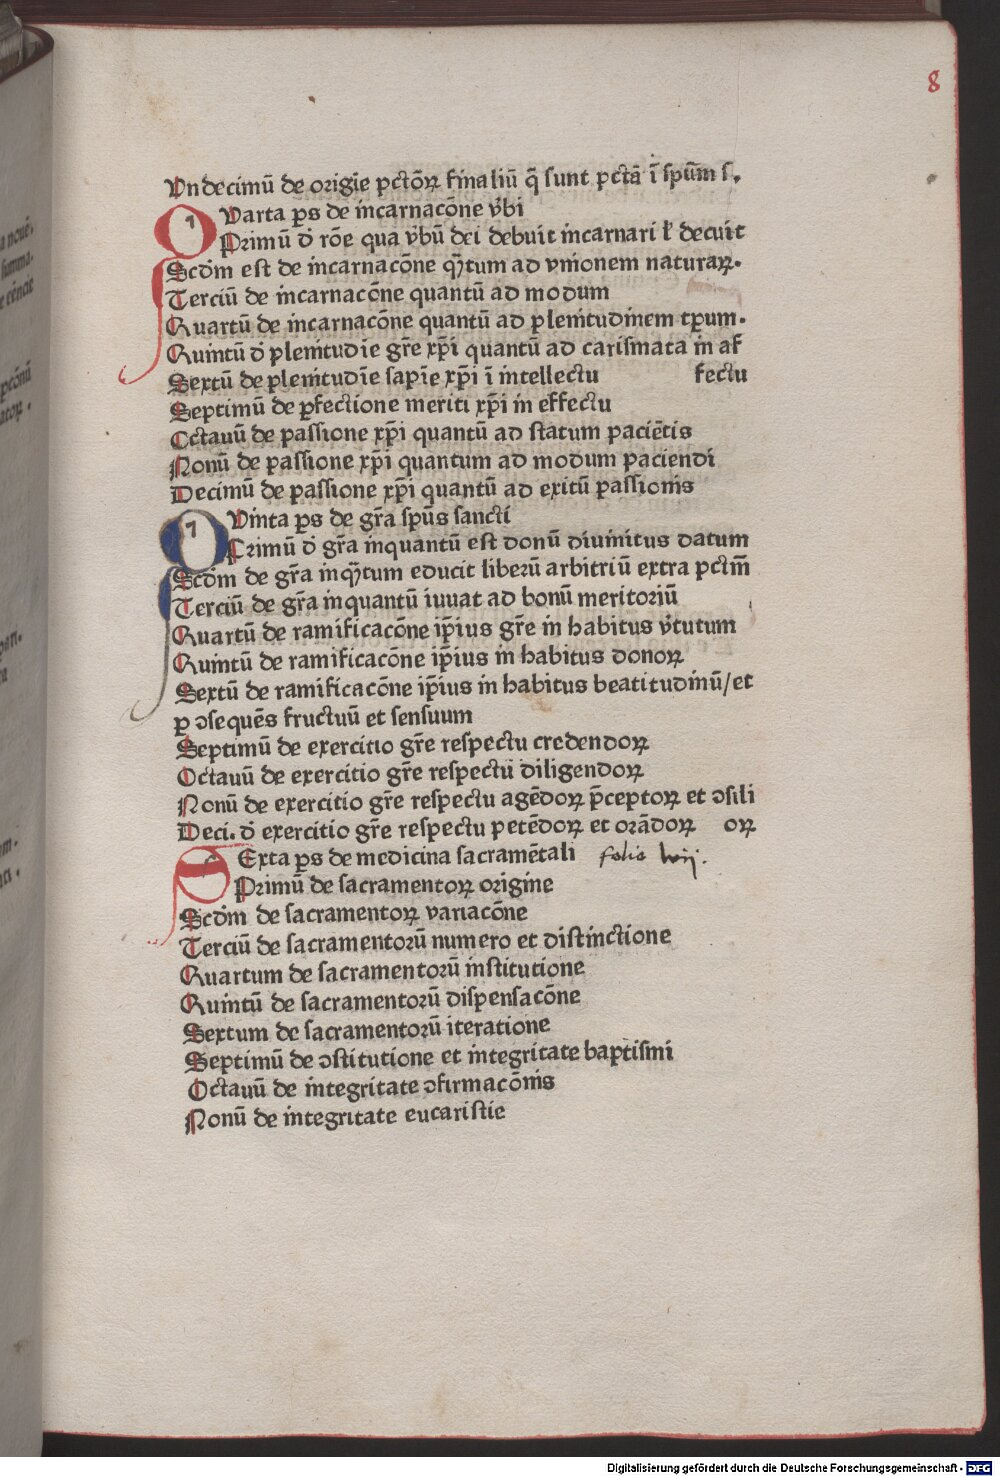 8
Vndecimū de origīe pctōꝝ finaliū q̄ sunt pctā ī spūm s.
QVarta ps de incarnacōne v̓bi
Primū d̓ rōne qua v̓bū dei debuit incarnari ł decuit
Scd̓m est de incarnacōne qͣtum ad vnionem naturaꝝ.
Terciū de incarnacōne quantū ad modum
Quartū de incarnacōne quantū ad plenitudinem tꝑum.
Quintū d̓ plenitudīe gr̄e xp̄i quantū ad carismata in af
Sextū de plenitudīe sapīe xp̄i ī intellectu fectu
Septimū de ꝑfectione meriti xp̄i in effectu
Octauū de passione xp̄i quantū ad statum paciētis
Nonū de passione xp̄i quantum ad modum paciendi
Decimū de passione xp̄i quantū ad exitū passionis
QVinta ps de gr̄a spūs sancti
Primū d̓ gr̄a inquantū est donū diuinitus datum
Scd̓m de gr̄a inqͣtum educit liberū arbitriū extra pctm̄
Terciū de gr̄a inquantū iuuat ad bonū meritoriū
Quartū de ramificacōne ip̄ius gr̄e in habitus v̓tutum
Quintū de ramificacōne ip̄ius in habitus donoꝝ
Sextū de ramificacōne ip̄ius in habitus beatitudinū/et
ꝑ ↄsequēs fructuū et sensuum
Septimū de exercitio gr̄e respectu credendoꝝ
Octauū de exercitio gr̄e respectu diligendoꝝ
Nonū de exercitio gr̄e respectu agēdoꝝ p̄ceptoꝝ et ↄsili
Deci. d̓ exercitio gr̄e respectu petēdoꝝ et orādoꝝ oꝝ
SExta ps de medicina sacramētali folio lvij.
Primū de sacramentoꝝ origine
Scd̓m de sacramentoꝝ variacōne
Terciū de sacramentorū numero et distinctione
Quartum de sacramentorū institutione
Quintū de sacramentorū dispensacōne
Sextum de sacramentorū iteratione
Septimū de ↄstitutione et integritate baptismi
Octauū de integritate ↄfirmacōnis
Nonū de integritate eucaristie
Digitalisierung gefördert durch die Deutsche Forschungsgemeinschaft - DFG